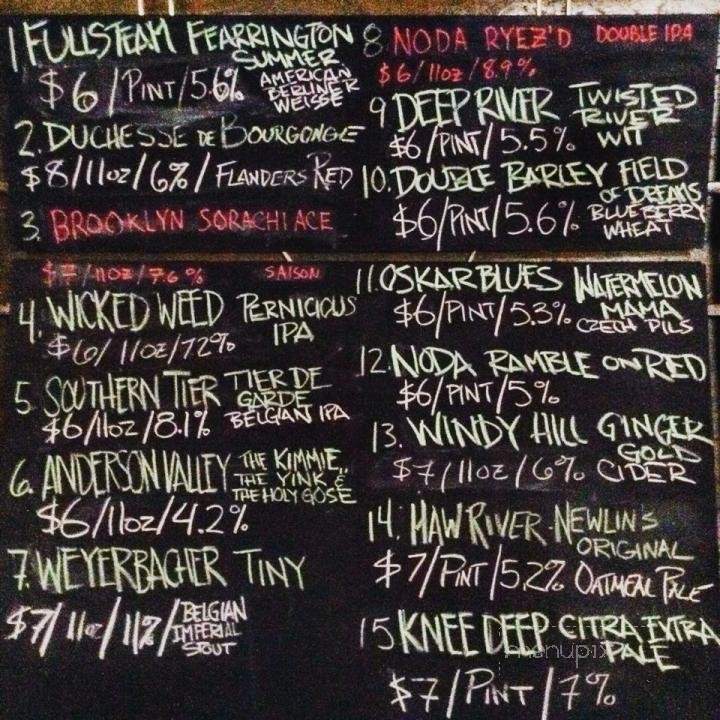 1 FULLSTEAM FEARRINGTON
SUMMER
$6/PINT/5.6% AMERICAN
BERLINER
WEISSE
2. DUCHESSE DE BOURGONGE
$8/11oz/6%/FLANDERS RED
3. BROOKLYN SORACHI ACE
$7/11oz/7.6% SAISON
4. WICKED WEED PERNICIOUS
IPA
$6/11oz/7.2%
5. SOUTHERN TIER TIER DE
GARDE
$6/11oz/8.1% BELGIAN IPA
6. ANDERSON VALLEY THE KIMMIE,
THE YINK &
THE HOLY GOSE
$6/11oz/4.2%
7. WEYERBACHER TINY
$7/11oz/11%/BELGIAN
IMPERIAL
STOUT
8 NODA RYEZ'D DOUBLE IPA
$6/11oz/8.9%
9 DEEP RIVER TWISTED
RIVER
WIT
$6/PINT/5.5%
10. DOUBLE BARLEY FIELD
OF DREAMS
BLUEBERRY
WHEAT
$6/PINT/5.6%
11. OSKAR BLUES WATERMELON
MAMA
$6/PINT/5.3% CZECH PILS
12. NODA RAMBLE ON RED
$6/PINT/5%
13. WINDY HILL GINGER
GOLD
$7/11oz/6% CIDER
14. HAW RIVER NEWLIN'S
ORIGINAL
$7/PINT/5.2% OATMEAL PALE
15 KNEE DEEP CITRA EXTRA
PALE
$7/PINT/7%
menupix